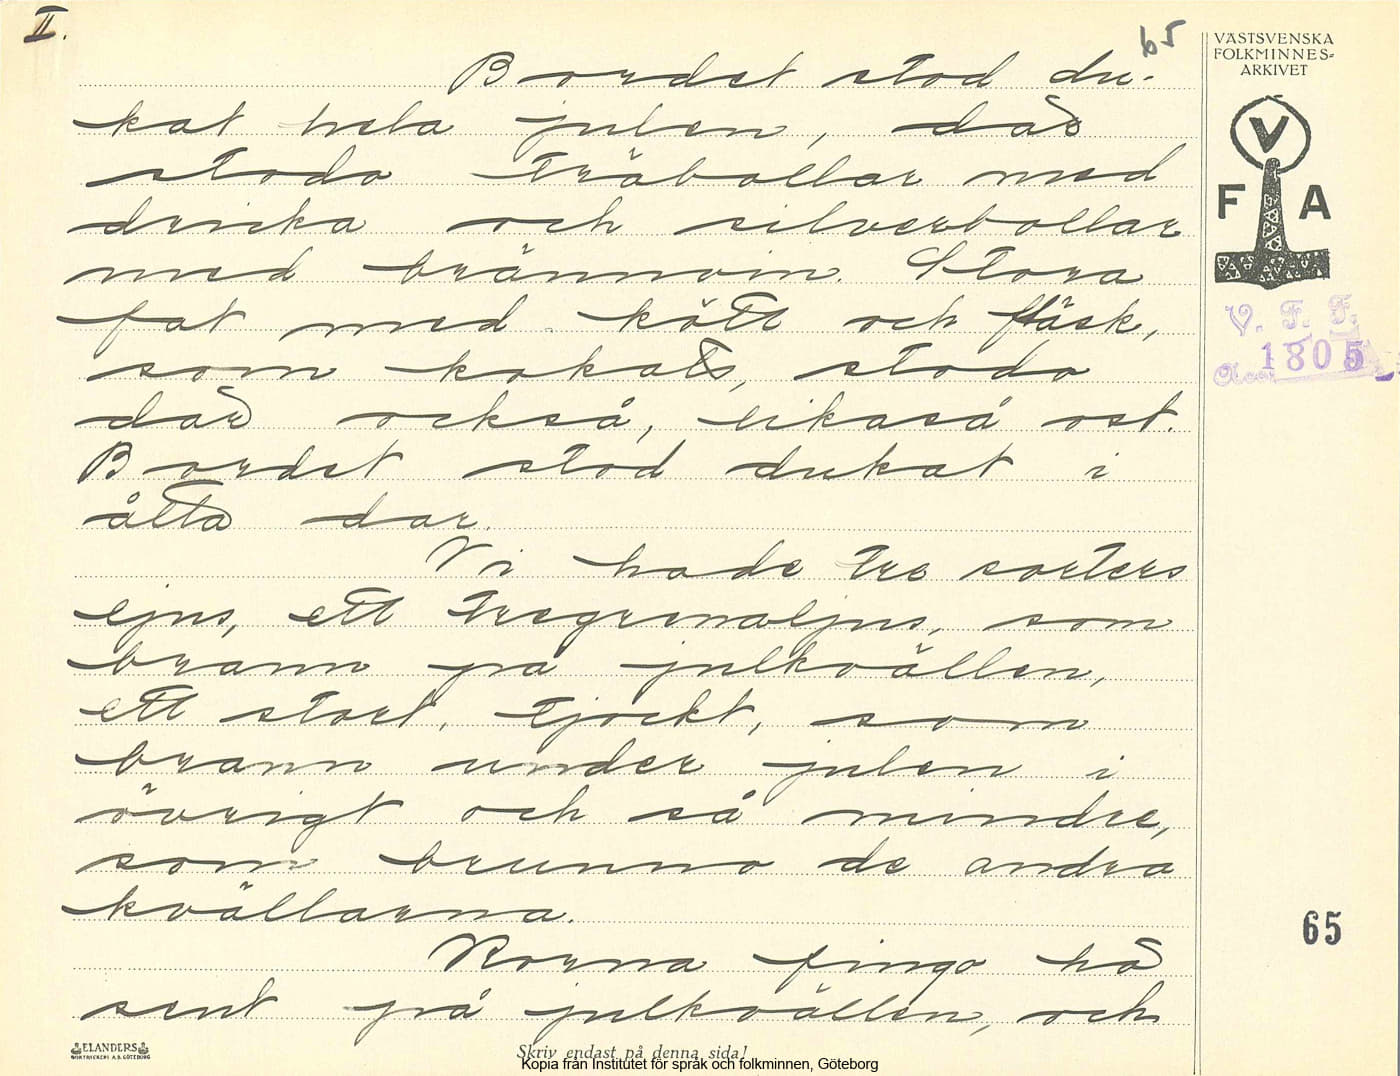 II.
65
VÄSTSVENSKA
FOLKMINNES-
ARKIVET
V
F A
V. F. F.
1805
Bordet stod du-
kat hela julen, där
stodo träbollar med
dricka och silverbollar
med brännvin. Stora
fat med kött och fläsk,
som kokats, stodo
där också, likaså ost.
Bordet stod dukat i
åtta dar.
Vi hade tre sorters
ljus, ett tregrenaljus, som
brann på julkvällen,
ett stort, tjockt, som
brann under julen i
övrigt och så mindre,
som brunno de andra
kvällarna.
65
Korna fingo hö
sent på julkvällen, och
ELANDERS
BOKTRYCKERI A.B. GÖTEBORG
Skriv endast på denna sida!
Kopia från Institutet för språk och folkminnen, Göteborg